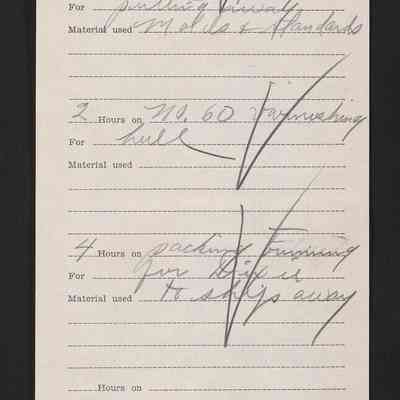 For putting away
Material used Molds & Standards
2 Hours on No. 60 Varnishing
For hull
Material used
4 Hours on packing
For for Dixie
Material used to ship away
Hours on